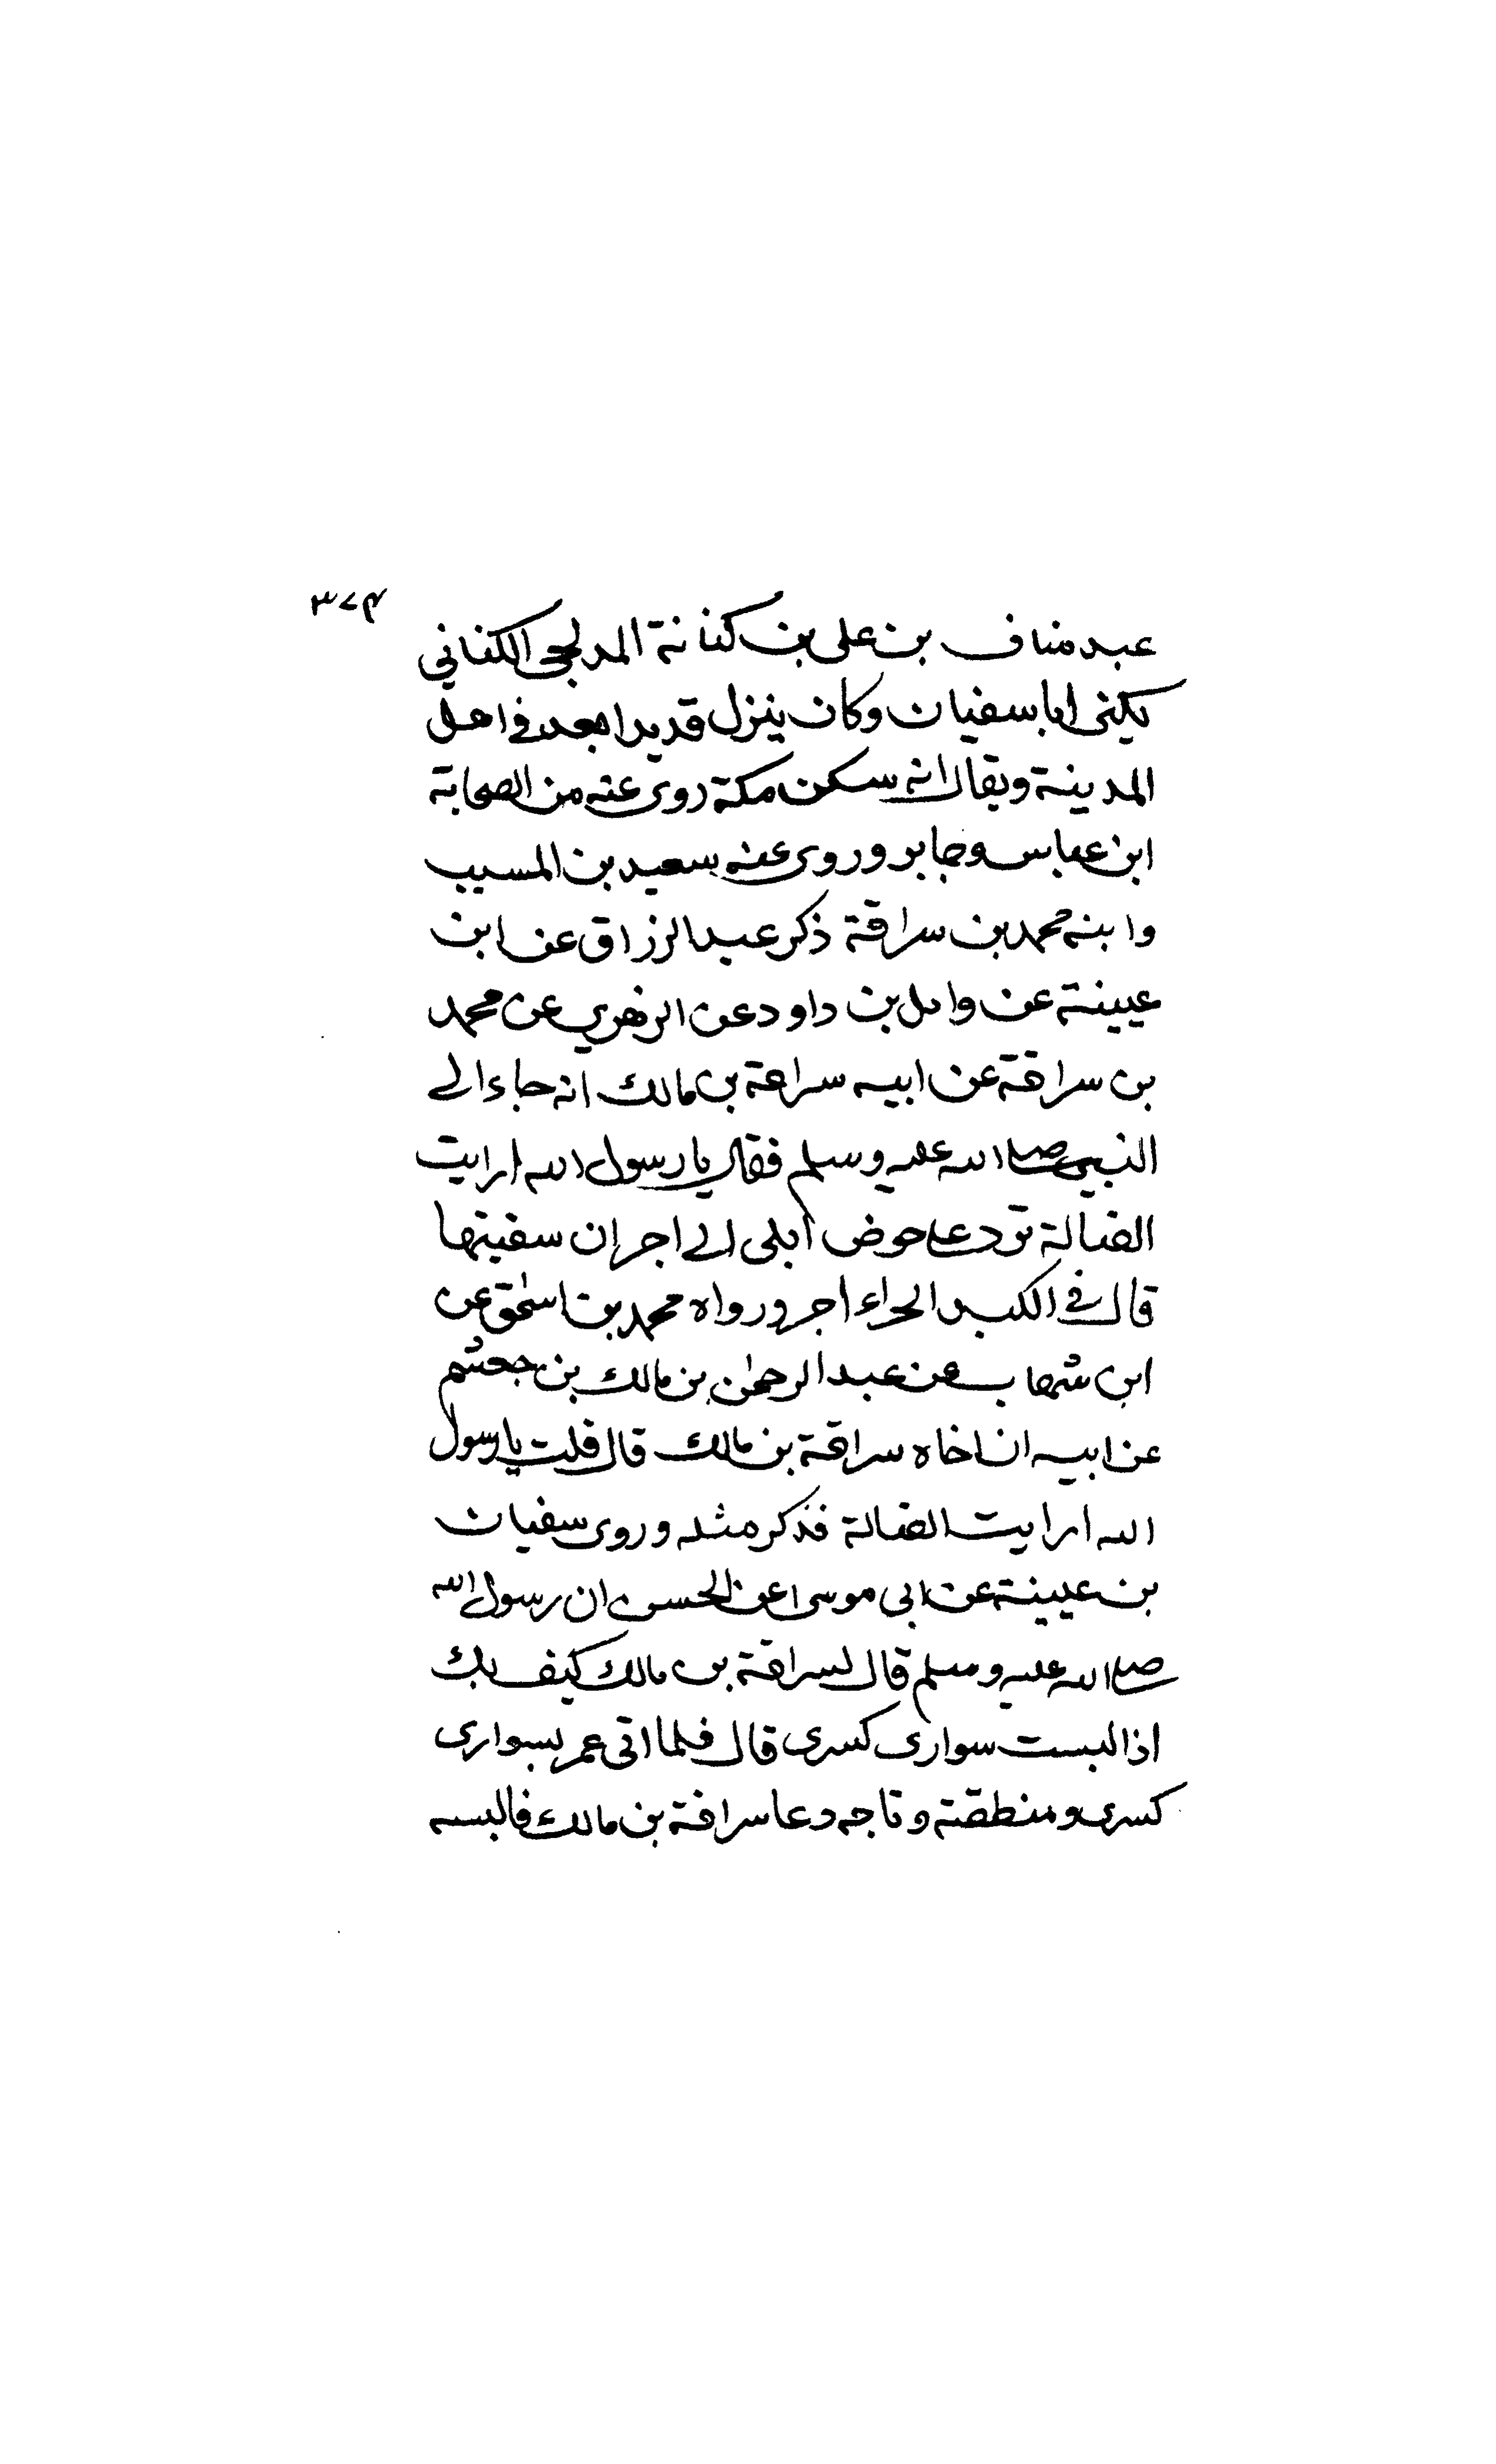 ٣٧٤
عبد مناف بن على بن كنانة المدلجى الكناني
يكنى ابا سفيان وكان ينزل قديدا يعد في اهل
المدينة ويقال انه سكن مكة روى عنه من الصحابة
ابن عباس وجابر وروى عنه سعيد بن المسيب
وابنه محمد بن سراقة ذكر عبد الرزاق عن ابن
عيينة عن وايل بن داود عن الزهري عن محمد
بن سراقة عن ابيه سراقة بن مالك انه جاء الى
النبي صلى الله عليه وسلم فقال يا رسول الله ارايت
الضالة ترد على حوض ابلى الي اجر ان سقيتها
قال في الكبد الحراء اجر ورواه محمد بن اسحٰق عن
ابن شهاب عن عبد الرحمٰن بن مالك بن جعشم
عن ابيه ان اخاه سراقة بن مالك قال قلت يا رسول
الله ارايت الضالة فذكر مثله وروى سفيان
بن عيينة عن ابى موسى عن الحسن ان رسول الله
صلى الله عليه وسلم قال لسراقة بن مالك كيف بك
اذا لبست سوارى كسرى قال فلما اتى عمر بسوارى
كسرى ومنطقته وتاجه دعا سراقة بن مالك فالبسه